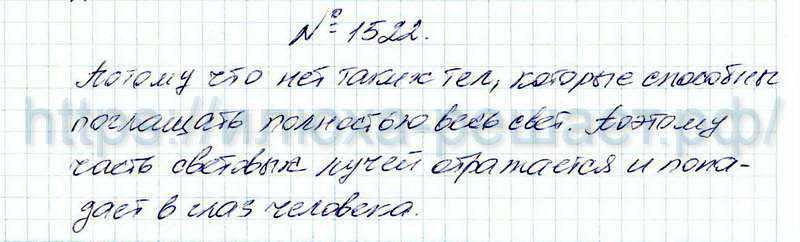 № 1522.
Потому что нет таких тел, которые способны
поглащать полностью весь свет. Поэтому
часть световых лучей отражается и попа-
дает в глаз человека.